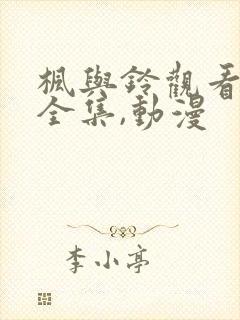 楓與鈴觀看
全集,動漫
李小亭